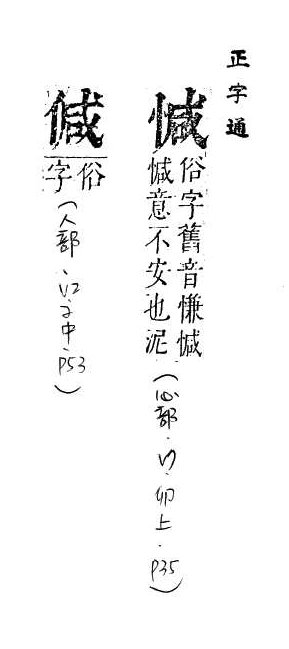 正字通
俗字舊音慊
意不安也泥
(心部．卯上．P35)
俗
字
(人部．子中．P53)